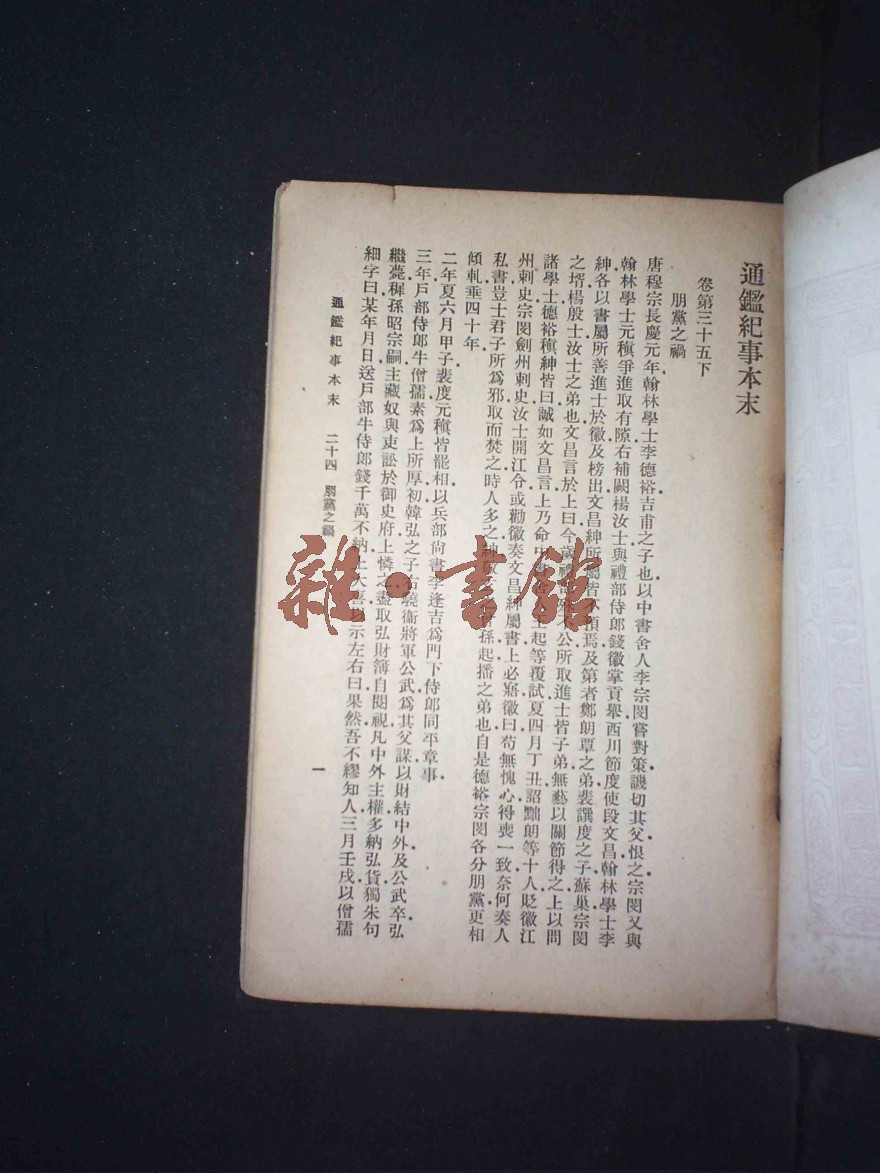 通鑑紀事本末
卷第三十五下
朋黨之禍
唐穆宗長慶元年翰林學士李德裕吉甫之子也以中書舍人李宗閔嘗對策譏切其父恨之宗閔又與
翰林學士元稹爭進取有隙右補闕楊汝士與禮部侍郎錢徽掌貢舉西川節度使段文昌翰林學士李
紳各以書屬所善進士於徽及榜出文昌紳所屬皆不預焉及第者鄭朗覃之弟裴譔度之子蘇巢宗閔
之壻楊殷士汝士之弟也文昌言於上曰今歲禮部殊不公所取進士皆子弟無藝以關節得之上以問
諸學士德裕稹紳皆曰誠如文昌言上乃命中書舍人王起等覆試夏四月丁丑詔黜朗等十人貶徽江
州刺史宗閔劍州刺史汝士開江令或勸徽奏文昌紳屬書上必寤徽曰苟無愧心得喪一致奈何奏人
私書豈士君子所爲邪取而焚之時人多之紳孫起播之弟也自是德裕宗閔各分朋黨更相
傾軋垂四十年
二年夏六月甲子裴度元稹皆罷相以兵部尙書李逢吉爲門下侍郎同平章事
三年戶部侍郎牛僧孺素爲上所厚初韓弘之子右驍衞將軍公武爲其父謀以財結中外及公武卒弘
繼薨穉孫昭宗嗣主藏奴與吏訟於御史府上憐之盡取弘財簿自閱視凡中外主權多納弘貨獨朱句
細字曰某年月日送戶部牛侍郎錢千萬不納上大喜以示左右曰果然吾不繆知人三月壬戌以僧孺
通鑑紀事本末　二十四　朋黨之禍
一
雜·書館